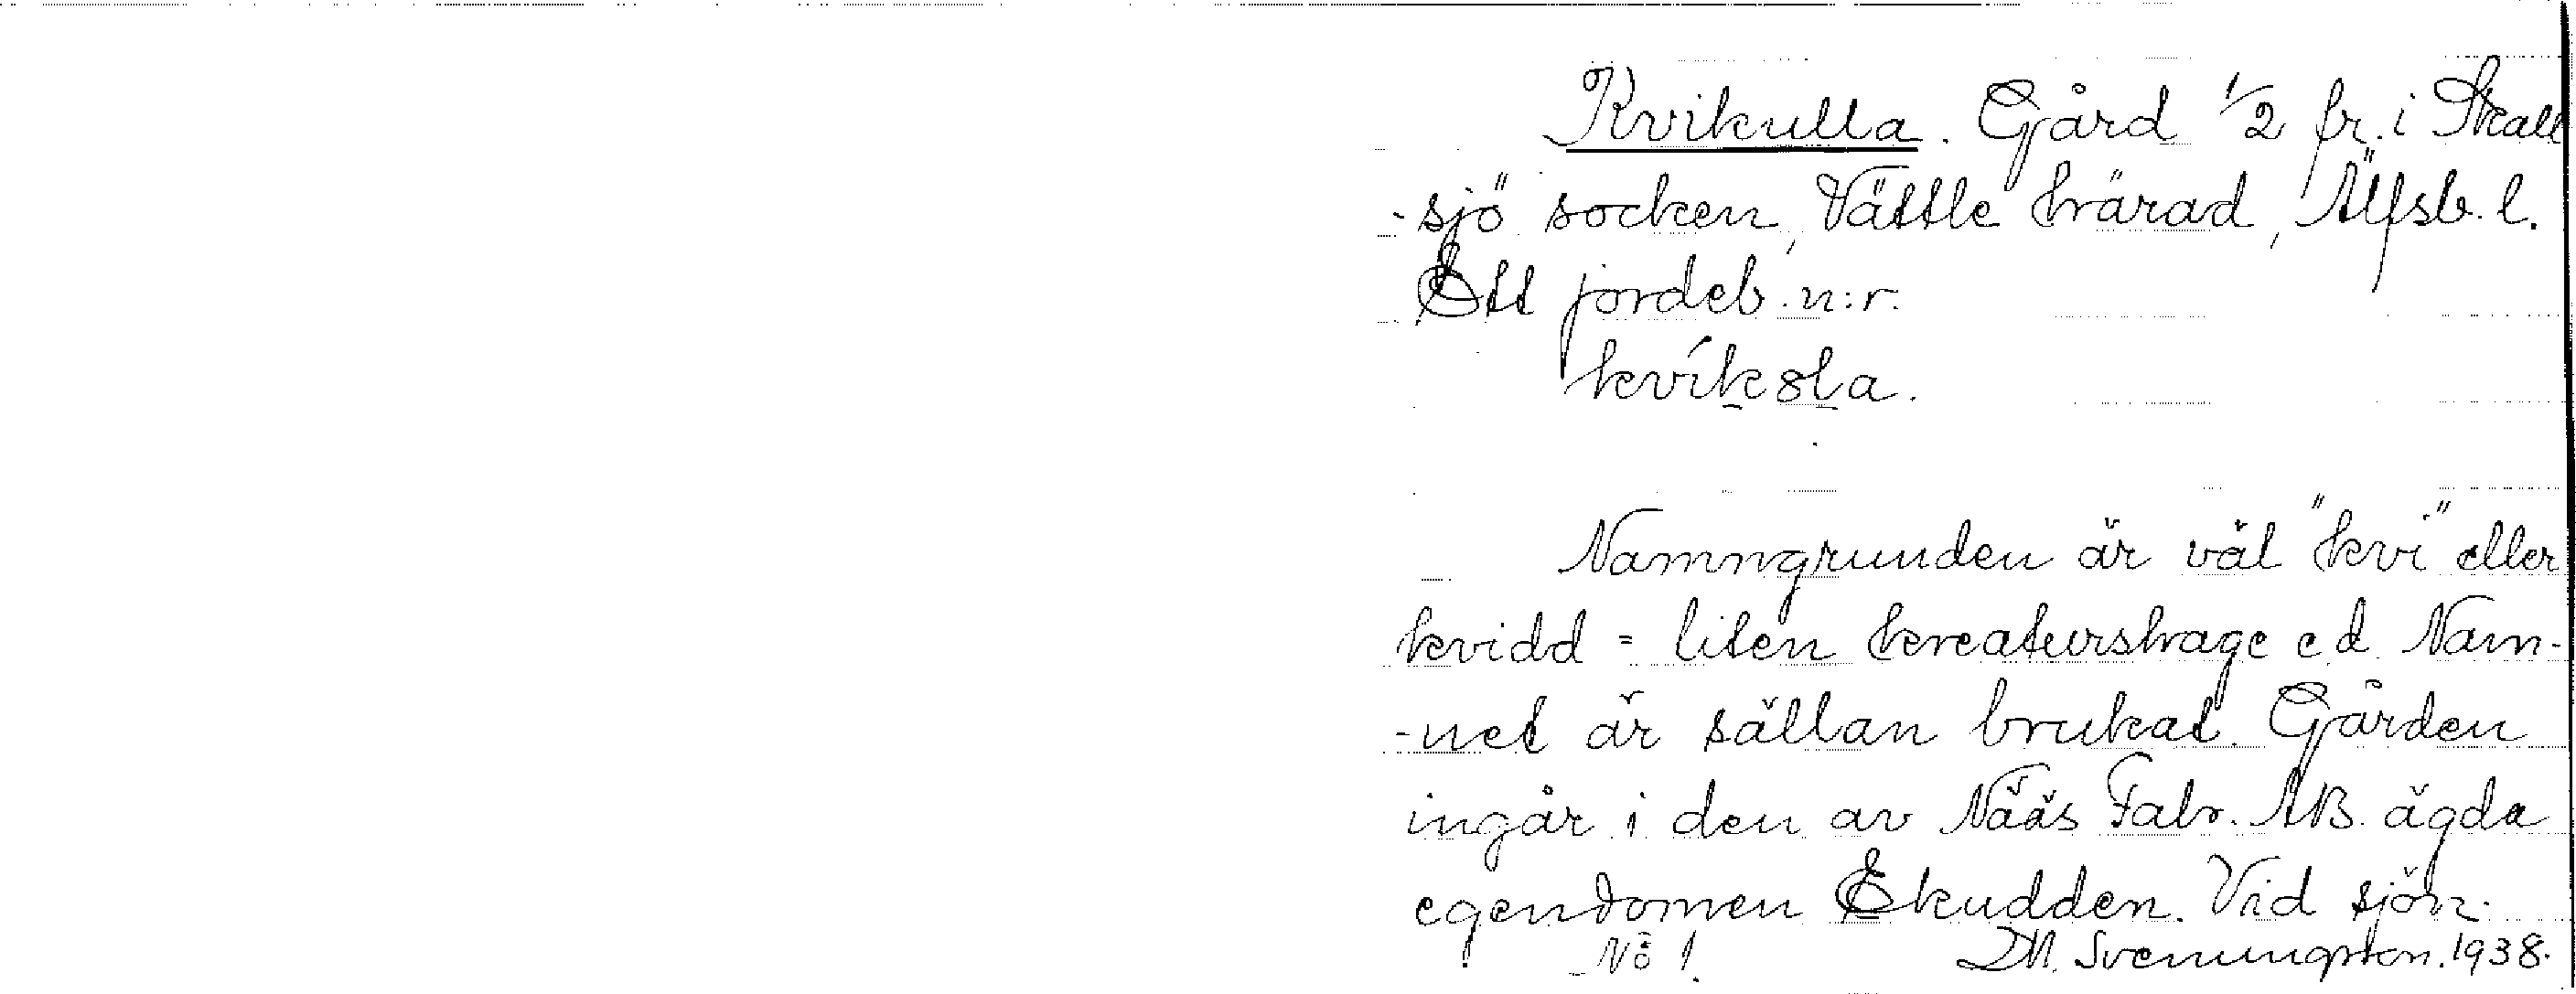 Kvikulla. Gård 1/2 fr. i Skall
-sjö socken, Vättle härad, Älfsb. l.
Ett jordeb. n:r.
kvíksla.
Namngrunden är väl "kvi" eller
kvidd = liten kreaturshage e d. Nam-
-net är sällan brukat. Gården
ingår i den av Nääs Fabr. AB. ägda
egendomen Ekudden. Vid sjön.
No 1. Svenungsson. 1938.